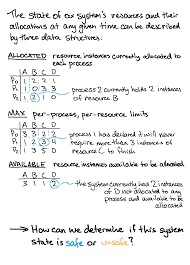 The state of our system's resources and their
allocations at any given time can be described
by three data structures:
ALLOCATED resource instances currently allocated to
each process
A B C D
P0 1 2 2 1
P1 1 0 3 3
P2 1 2 1 0
process 2 currently holds 2 instances
of resource B
MAX per-process, per-resource limits
A B C D
P0 3 3 2 2
P1 1 2 3 4
P2 1 3 5 0
process 1 has declared it will never
require more than 3 instances of
resource C to finish
AVAILABLE resource instances available to be allocated
A B C D
3 1 1 2
the system currently has 2 instances
of D not allocated to any
process and available to be
allocated
→ How can we determine if this system
state is safe or unsafe?